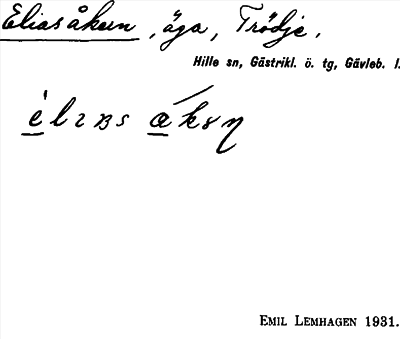 Eliasåkern, äga, Trödje.
Hille sn, Gästrikl. ö. tg, Gävleb. l.
EMIL LEMHAGEN 1931.